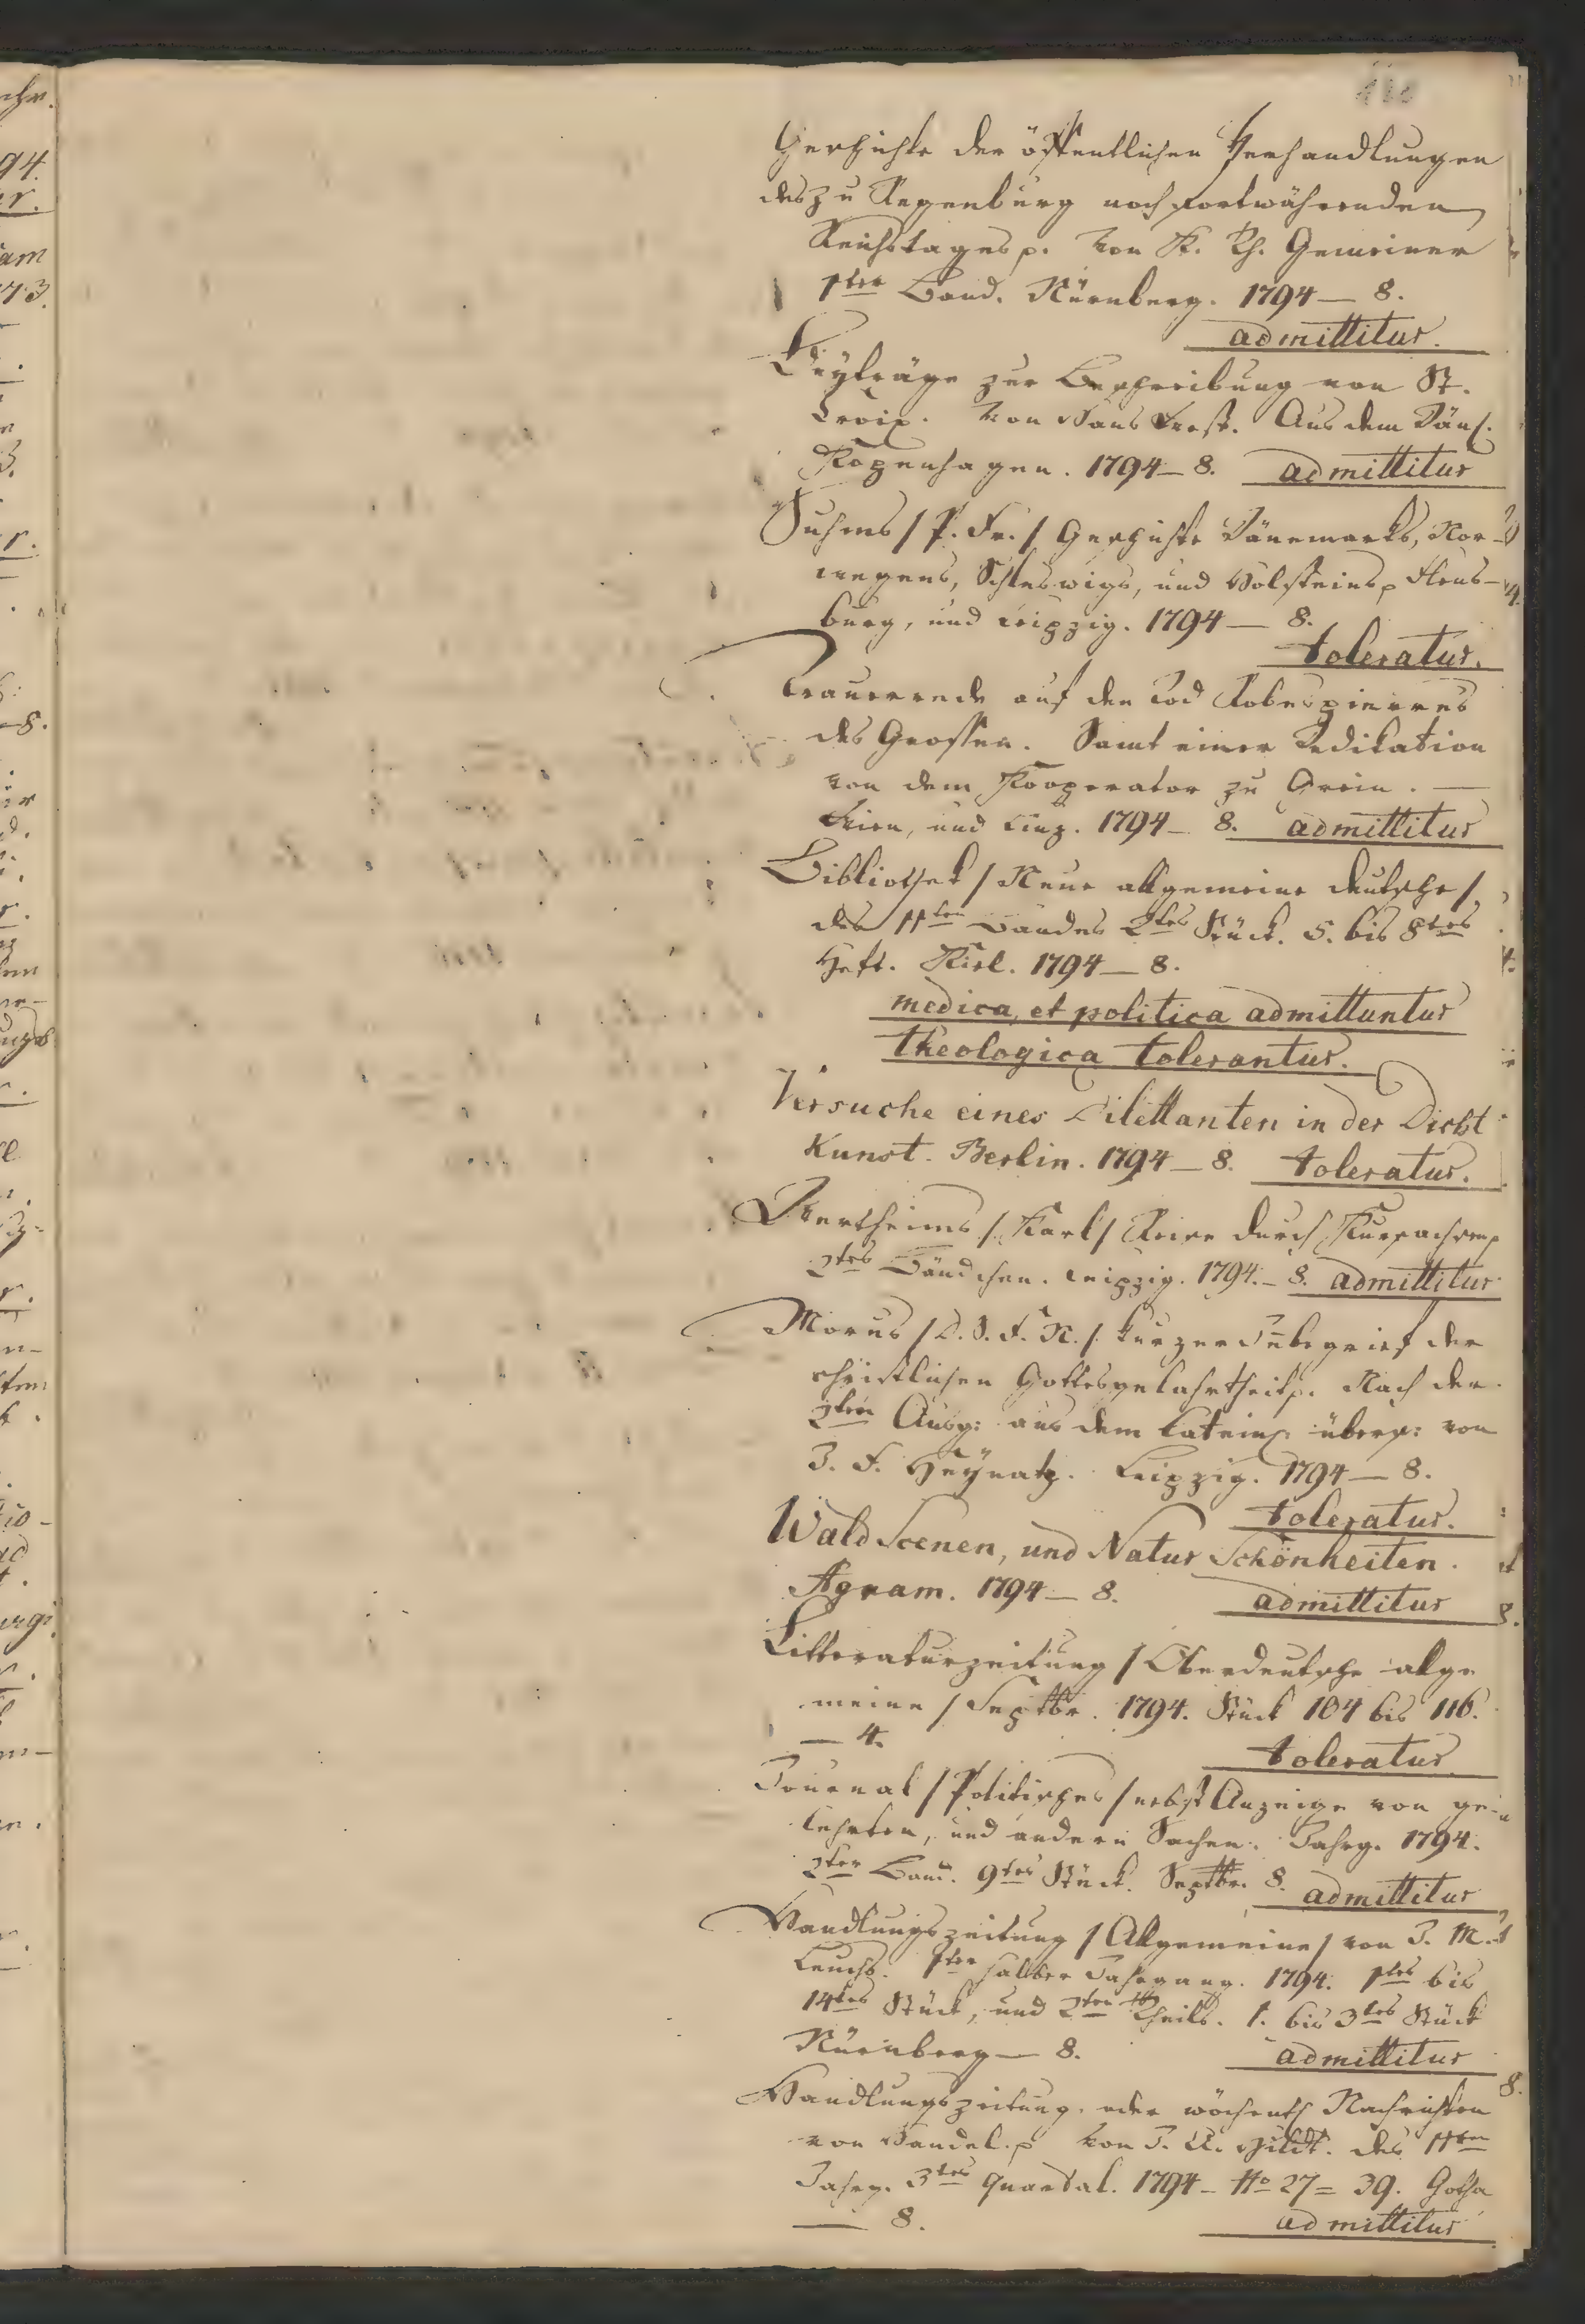 Geschichte der öffentlichen Verhandlungen
des zu Regensburg noch fortwährenden
Reichstages p. Von K. Th. Gemeiner
1ter Band. Nürnberg. 1794 — 8.
admittitur.
Beyträge zur Beschreibung von St.
Croix. Von Hans West. Aus dem Dän.
Kopenhagen. 1794 — 8. admittitur
Suhms / P. Fr. / Geschichte Dänemarks, Nor-
wegens, Schleswigs, und Holsteins p Flens-
burg, und Leipzig. 1794 — 8.
toleratur.
Trauerrede auf den Tod Robespierres
des Grossen. Samt einer Dedikation
von dem Kooperator zu Grein. —
Wien, und Linz. 1794 — 8. admittitur
Bibliothek / Neue allgemeine deutsche /
des 11ten Bandes 2tes Stück. 5. bis 8tes
Heft. Kiel. 1794 — 8.
medica, et politica admittuntur
theologica tolerantur.
Versuche eines Dilettanten in der Dicht
Kunst. Berlin. 1794 — 8. toleratur.
Wertheims / Karl / Reise durch Kursachsen p
2tes Bändchen. Leipzig. 1794. — 8. admittitur
Morus / D. S. F. N. / kurzer Inbegrief der
christlichen Gottesgelahrtheit p. Nach der
2ten Ausg: aus dem Latein: übers: von
J. F. Heynatz. Leipzig. 1794 — 8.
toleratur.
Wald Scenen, und Natur Schönheiten.
Agram. 1794 — 8. admittitur
Litteraturzeitung / Oberdeutsche allge
meine / Septbr. 1794. Stück 104 bis 116.
— 4.
toleratur.
Journal / Politisches / nebst Anzeige von ge-
lehrten, und andern Sachen. Jahrg. 1794.
2ter Band. 9tes Stück. Septbr. 8. admittitur
Handlungszeitung / Allgemeine / von J. M.
Leuchs. 1ter halber Jahrgang. 1794. 1tes bis
14tes Stück, und 2ten Theils. 1. bis 3tes Stück
Nürnberg — 8. admittitur
Handlungszeitung, oder wöchentl Nachrichten
von Handel. p Von J. A. Hildt. des 11ten
Jahrg. 3tes Quartal. 1794 — No 27 = 39. Gotha
— 8. admittitur